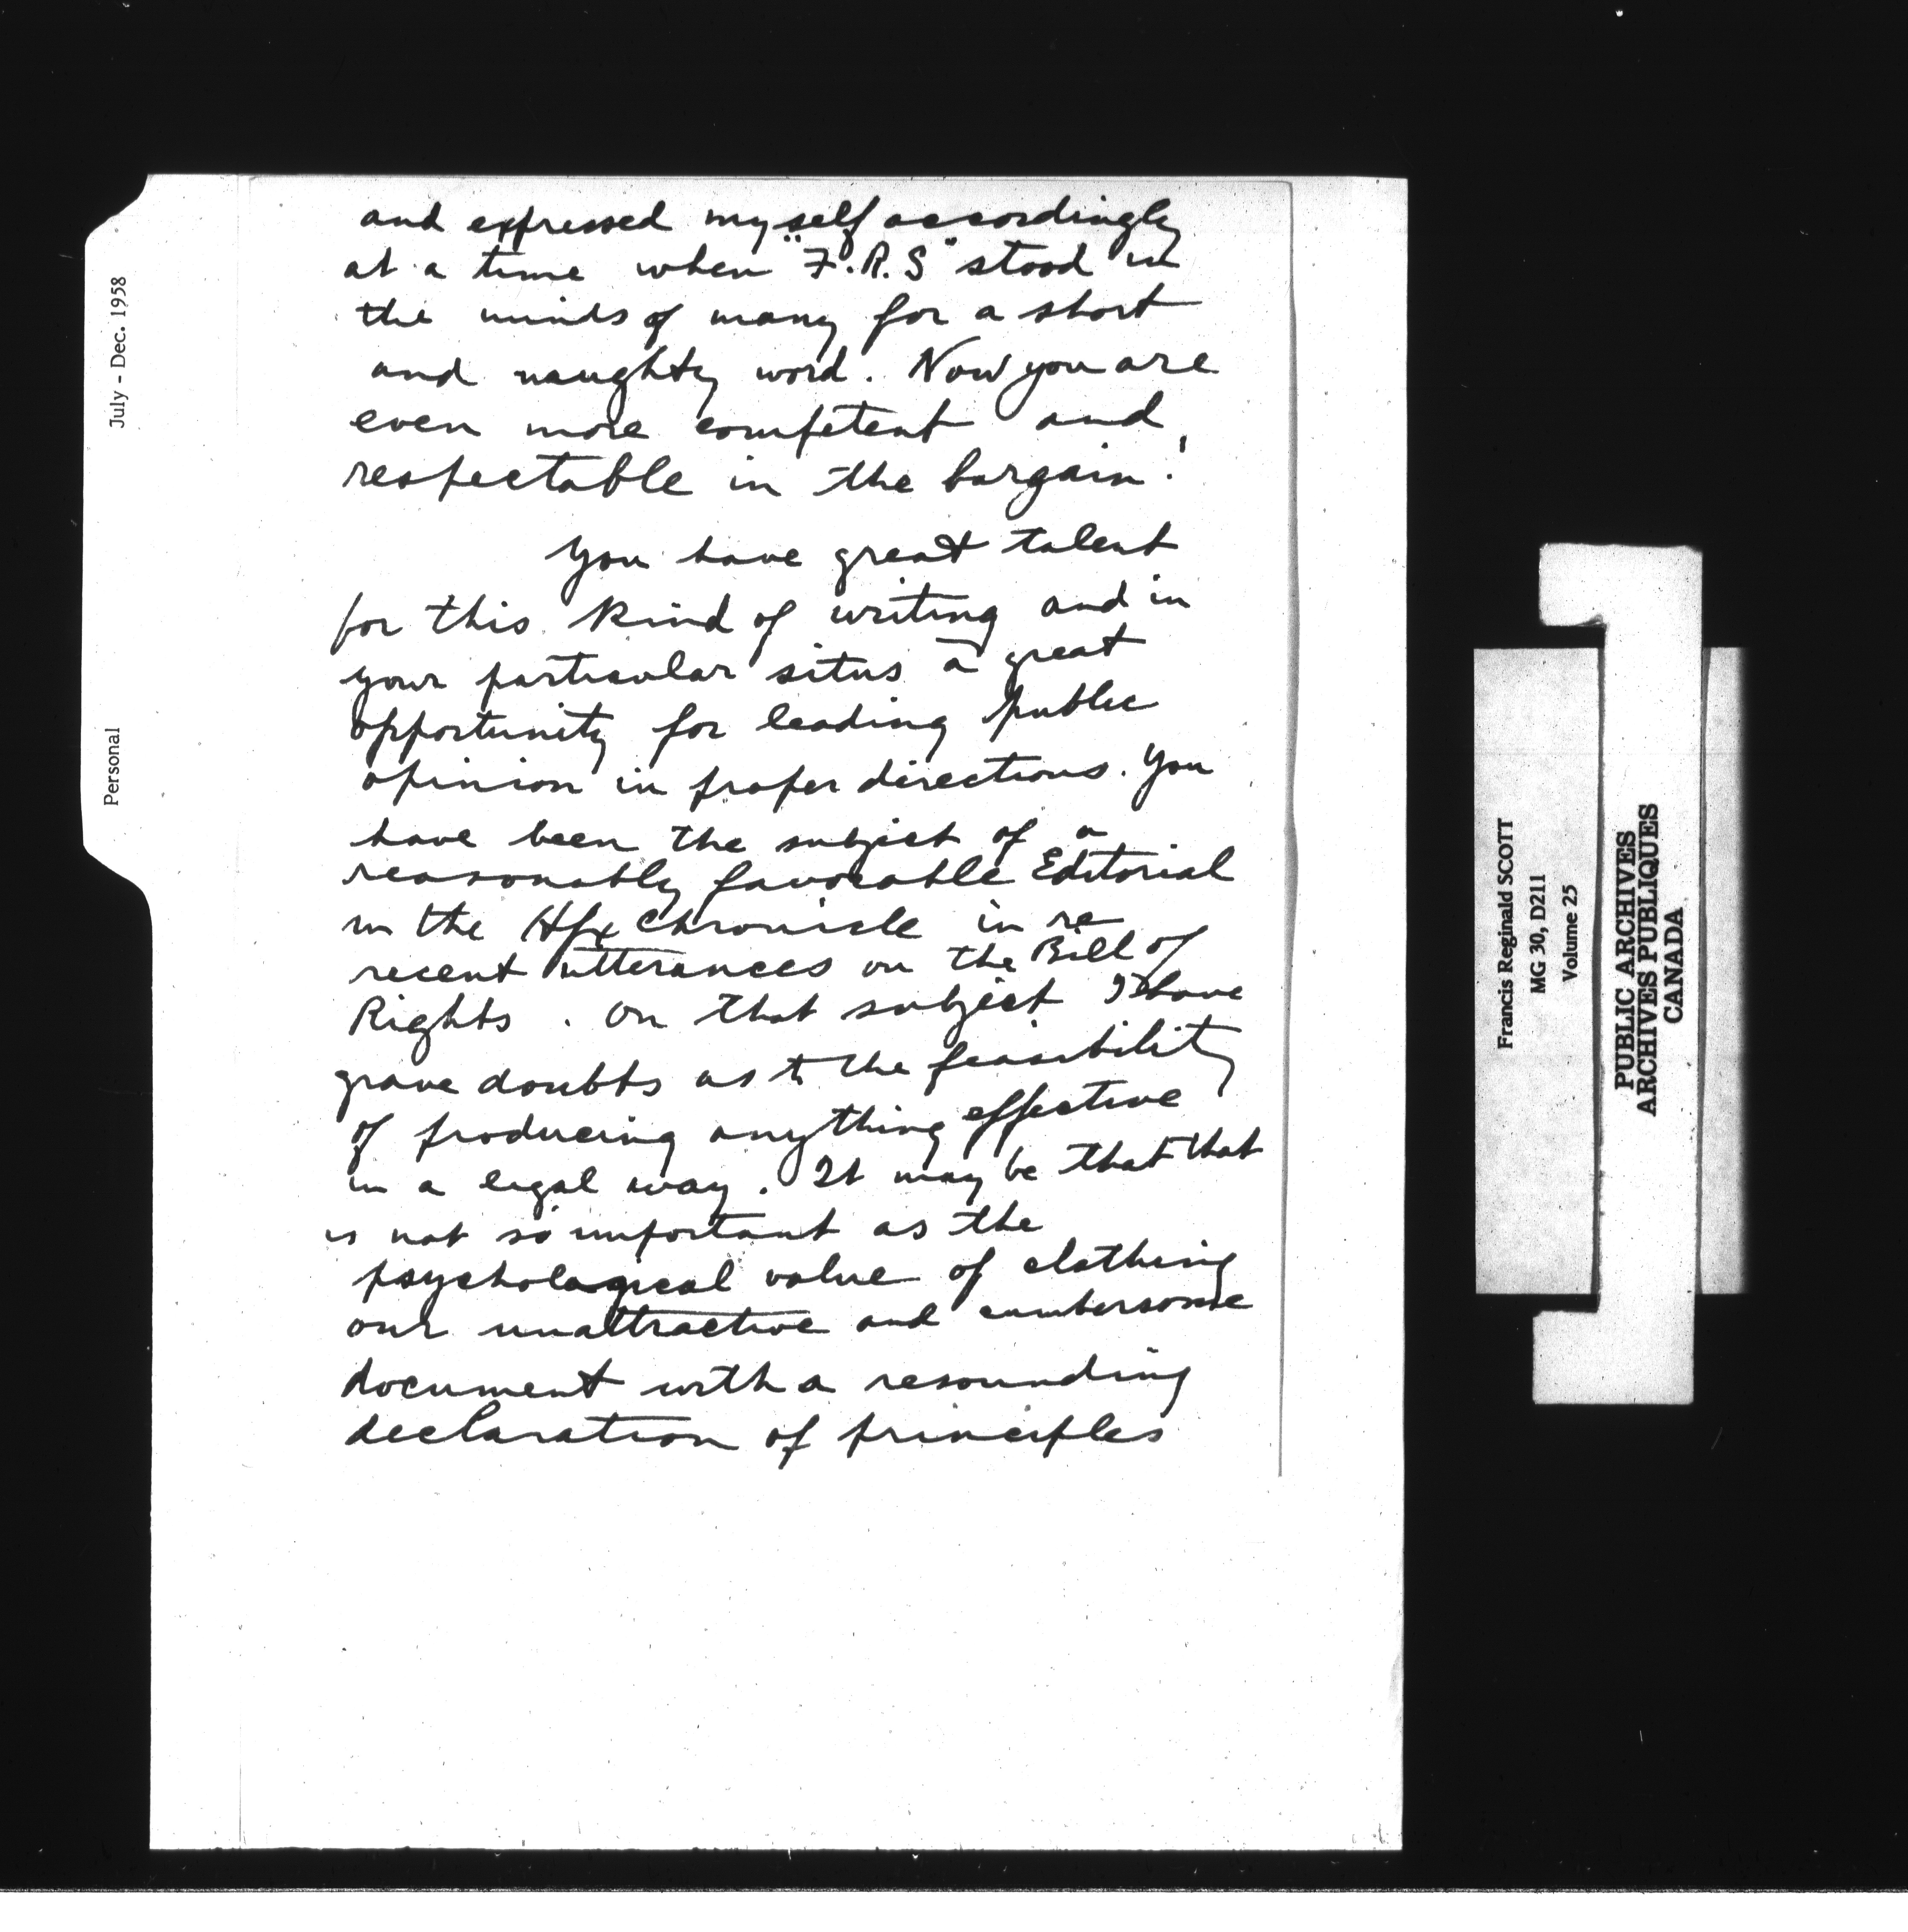 and expressed myself accordingly
at a time when "F.R.S" stood in
the minds of many for a short
and naughty word. Now you are
even more competent and
respectable in the bargain!
You have great talent
for this kind of writing and in
your particular situs a great
opportunity for leading public
opinion in proper directions. You
have been the subject of a
reasonably favorable Editorial
in the Hfx Chronicle in re
recent utterances on the Bill of
Rights. On that subject I have
grave doubts as to the feasibility
of producing anything effective
in a legal way. It may be that that
is not so important as the
psychological value of clothing
our unattractive and cumbersome
document with a resounding
declaration of principles
July - Dec. 1958
Personal
Francis Reginald SCOTT
MG 30, D211
Volume 25
PUBLIC ARCHIVES
ARCHIVES PUBLIQUES
CANADA